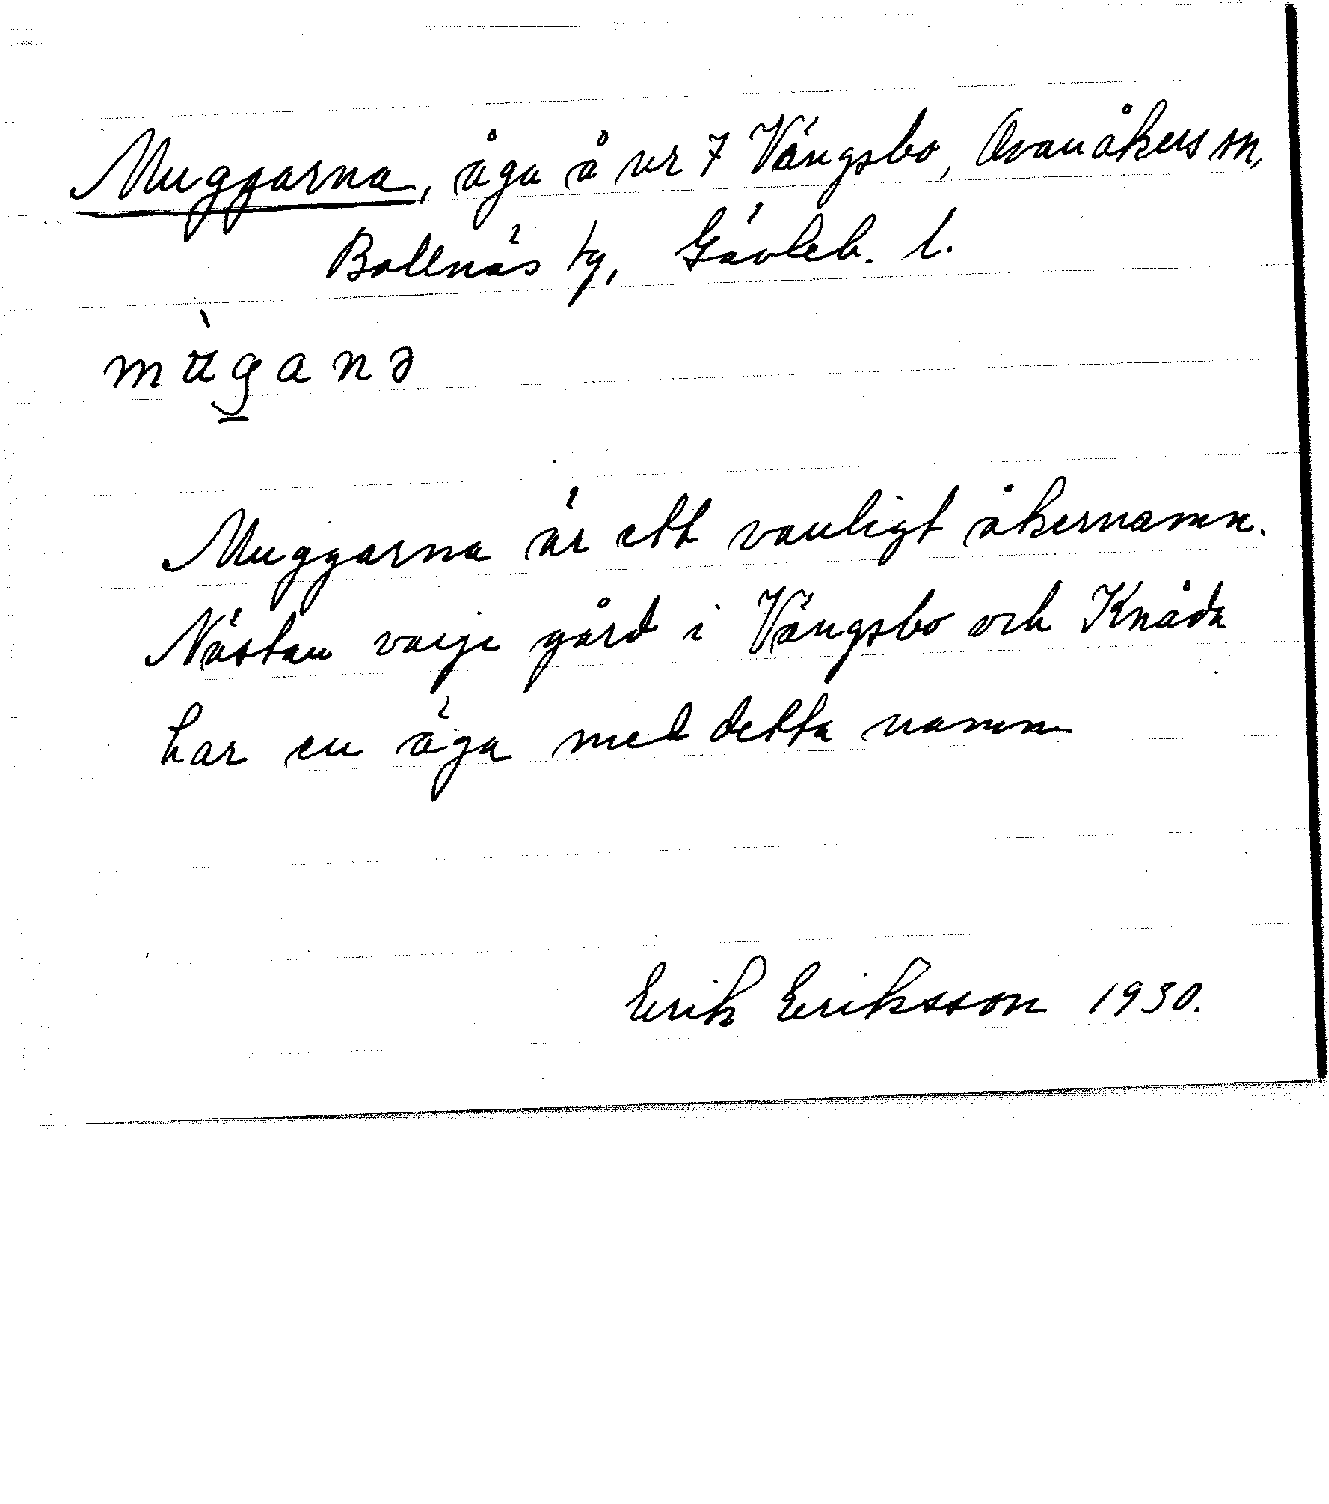 Muggarna, äga å nr 7 Vängsbo, Ovanåkers sn,
Bollnäs tg, Gävleb. l.
mʉ̀ganə
Muggarna är ett vanligt åkernamn.
Nästan varje gård i Vängsbo och Knåda
har en äga med detta namn
Erik Eriksson 1930.